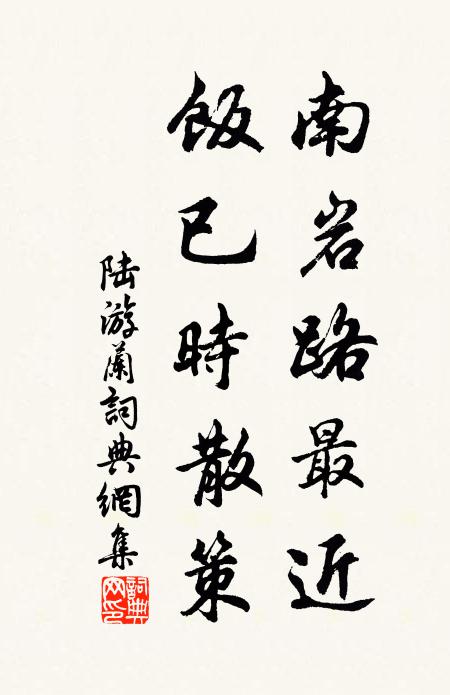 南岩路最近
飯已時散策
陸游蘭詞典網集
詞典網印